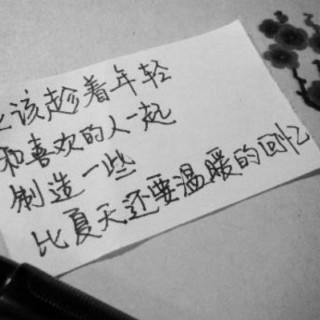 该趁着年轻
和喜欢的人一起
制造一些
比夏天还要温暖的回忆